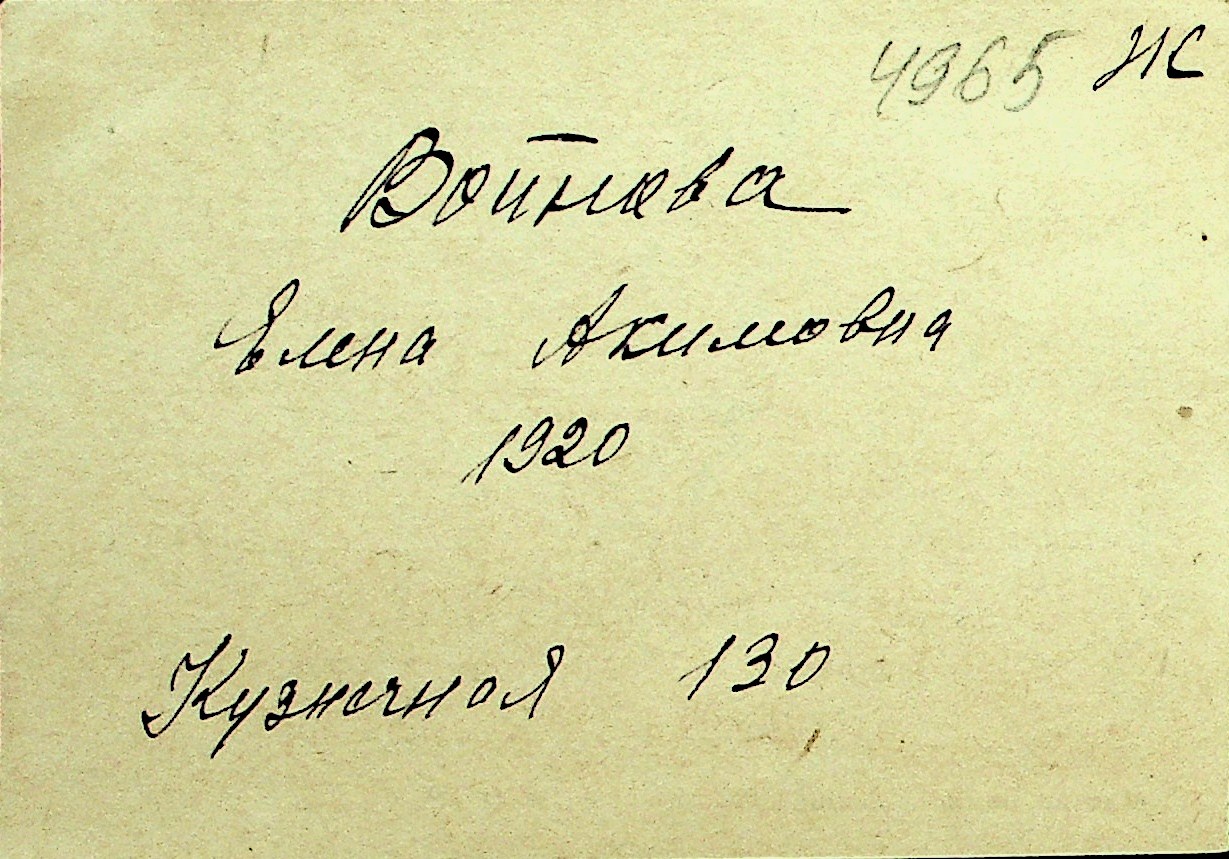 4965 Ж
Войнова
Елена Акимовна
1920
Кузнечная 130